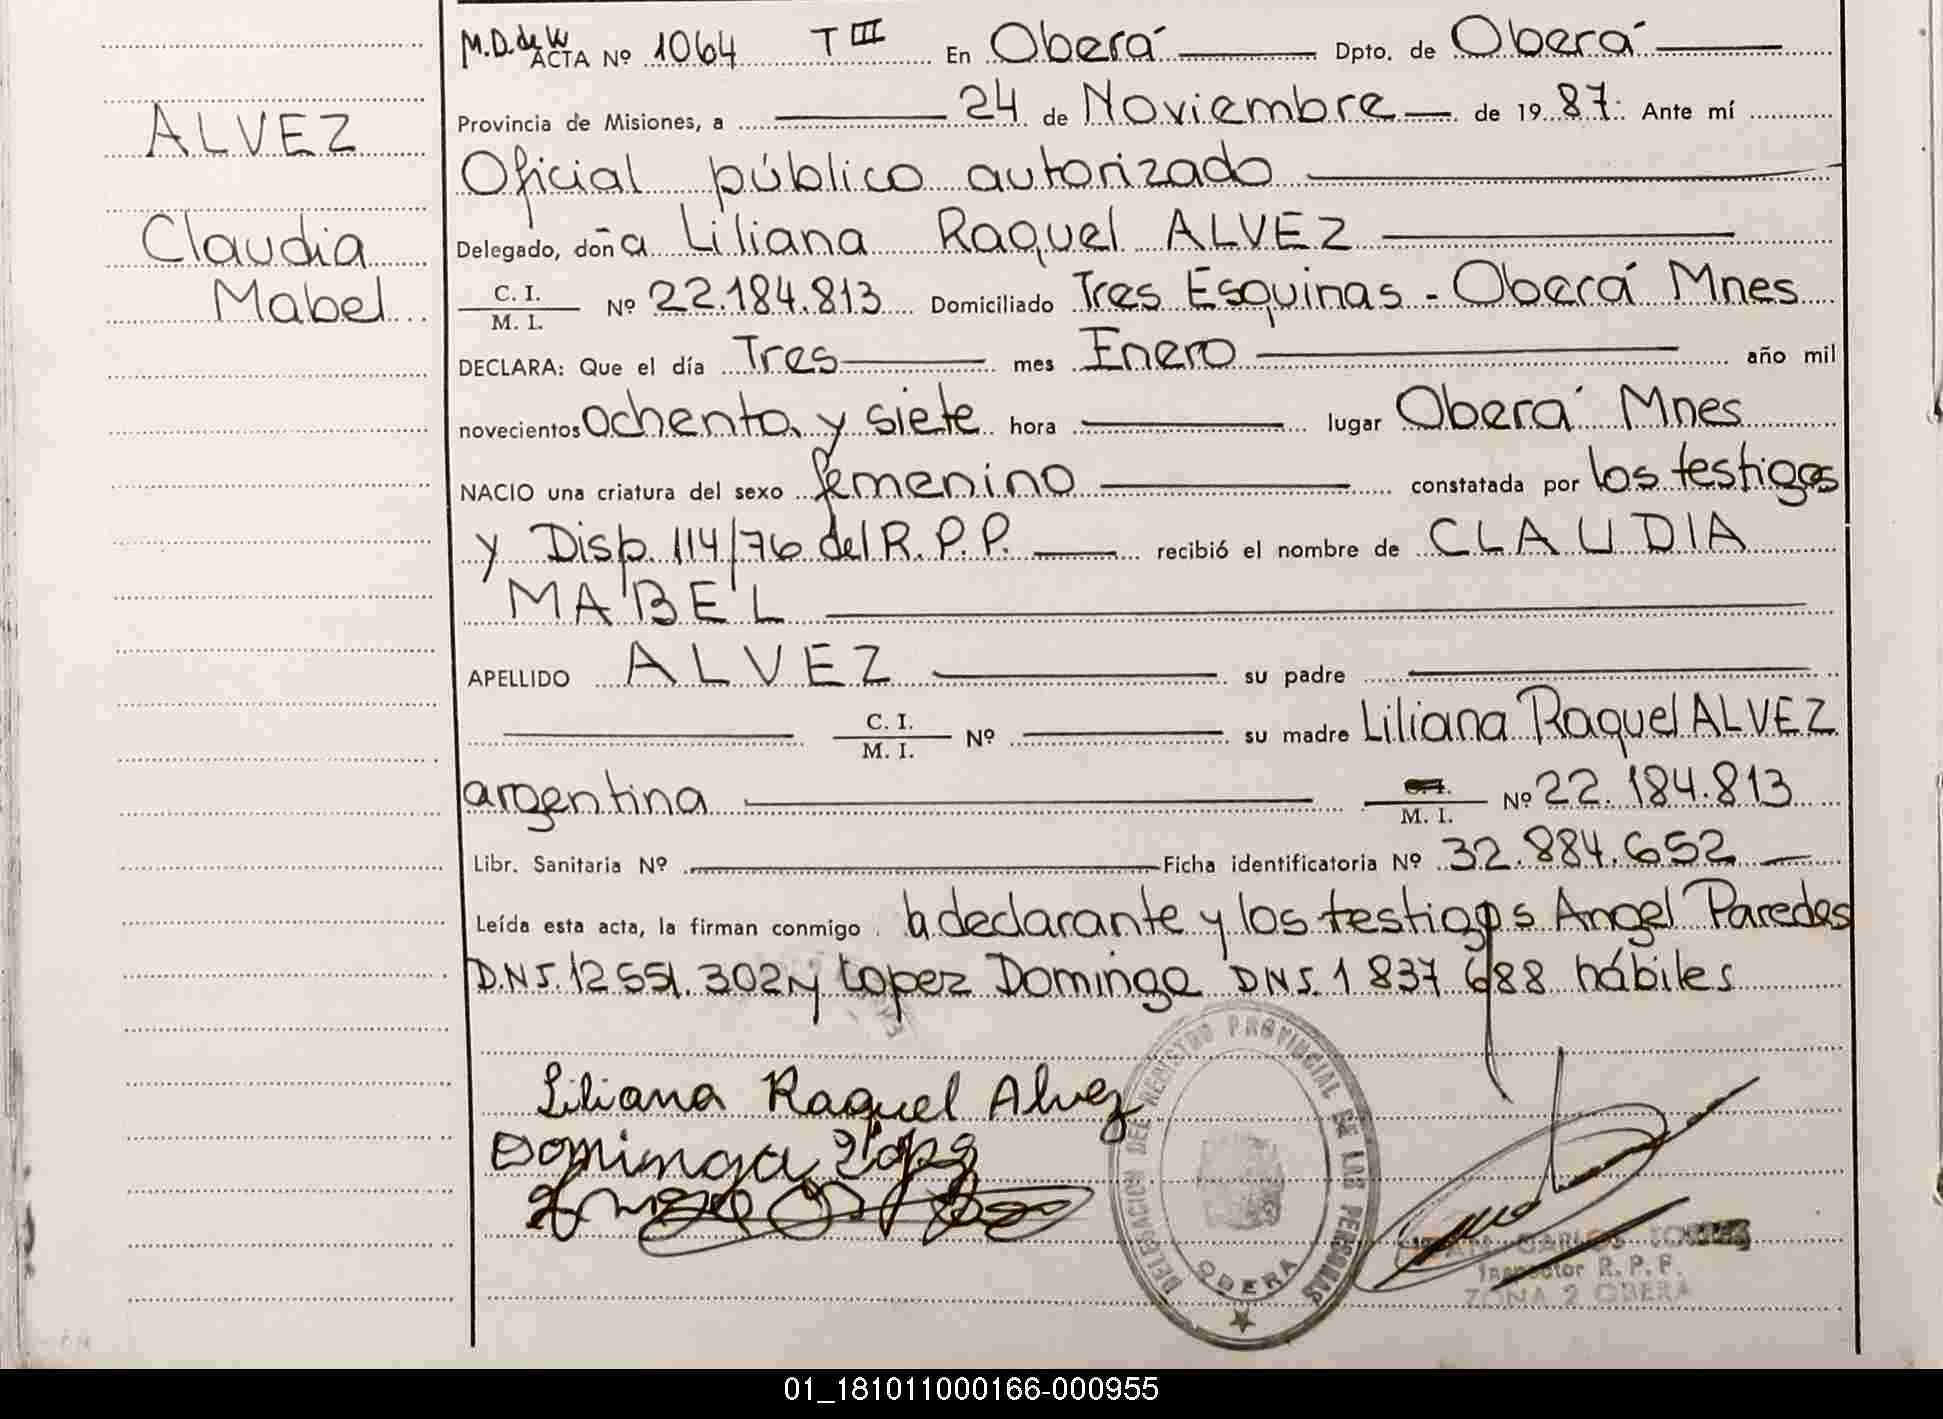 M.D. de W
ACTA Nº 1064 T III En Oberá Dpto. de Oberá
ALVEZ
Provincia de Misiones, a 24 de Noviembre de 1987. Ante mí
Oficial público autorizado
Claudia
Mabel
Delegado, doña Liliana Raquel ALVEZ
C. I.
M. I. Nº 22.184.813 Domiciliado Tres Esquinas - Oberá Mnes
DECLARA: Que el día Tres mes Enero año mil
novecientos ochenta y siete hora lugar Oberá Mnes
NACIO una criatura del sexo femenino constatada por los testigos
y Disp. 114/76 del R.P.P. recibió el nombre de CLAUDIA
MABEL
APELLIDO ALVEZ su padre
C. I.
M. I. Nº su madre Liliana Raquel ALVEZ
argentina M. I. Nº 22.184.813
Libr. Sanitaria Nº Ficha identificatoria Nº 32.884.652
Leída esta acta, la firman conmigo la declarante y los testigos Angel Paredes
D.N.I. 12 551.302 y Lopez Dominga DNI. 1 837 688 hábiles
Liliana Raquel Alvez
Dominga
DELEGACION DEL REGISTRO PROVINCIAL DE LAS PERSONAS
OBERA
JUAN CARLOS
Inspector R. P. P.
ZONA 2 OBERA
01_181011000166-000955